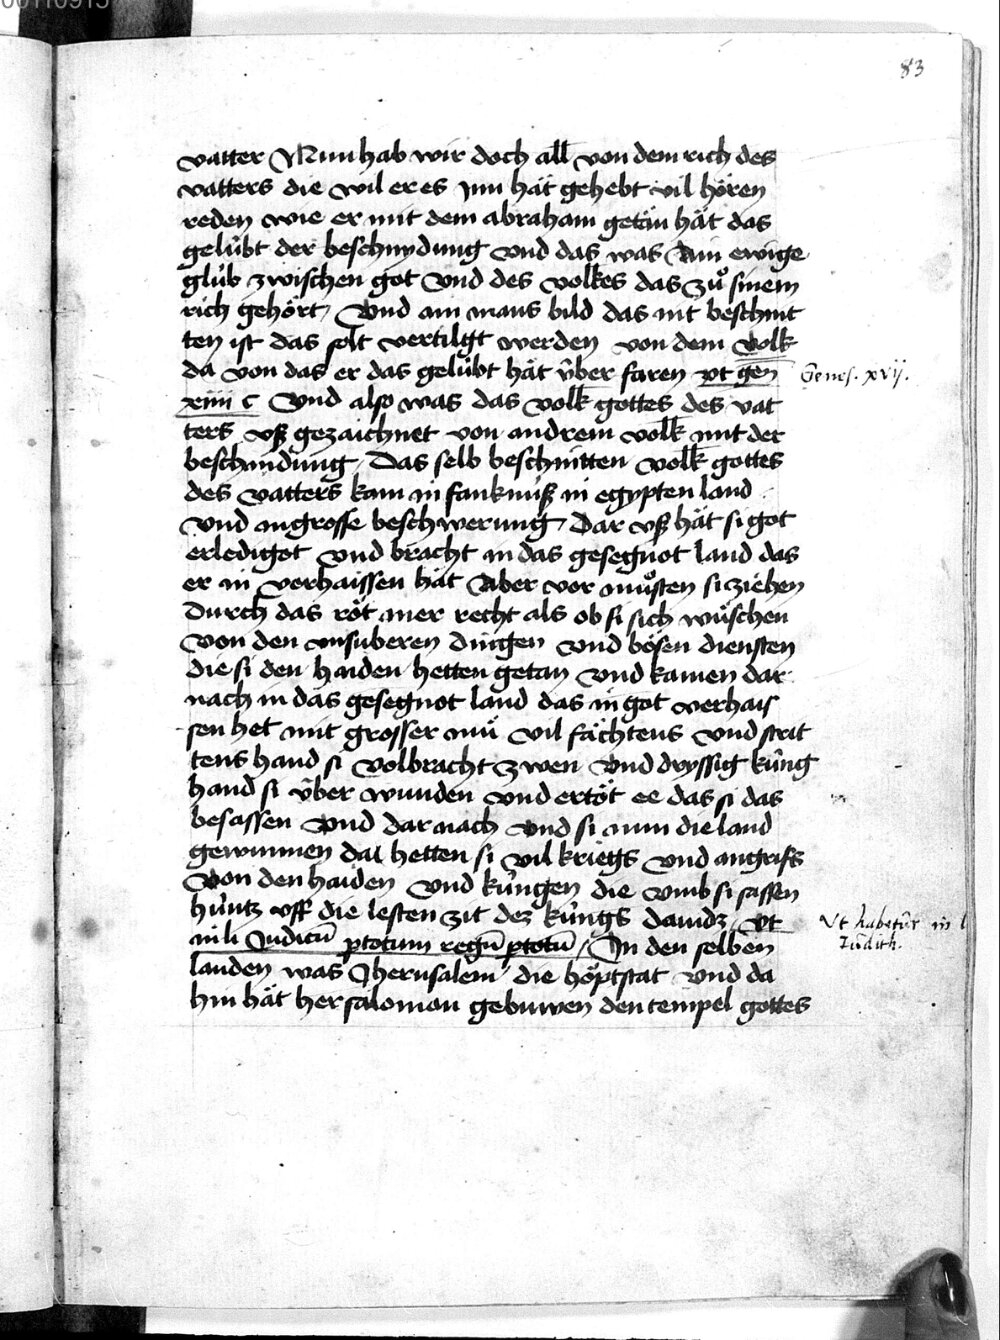 83
vatter Nun hab wir doch all von dem rich des
vatters die wil er es Jnn hät gehebt vil hören
reden wie er mit dem abraham getän hät das
gelübt der beschnydung vnd das was Ain ewige
glüb zwischen got vnd des volkes das zů sinem
rich gehört / Vnd ain mans bild das nit beschnit
ten ist das solt vertilgt werden von dem volk
da von das er das gelübt hät über faren vt gen̄
xiiii c Vnd also was das volk gottes des vat
ters vß gezaichnet von andrem volk mit der
beschnidung / Das selb beschnitten volk gottes
des vatters kam in fanknüß in egypten land
vnd in grosse beschwerung / Dar vß hät si got
erlediget vnd bracht in das gesegnot land das
er in verhaissen hät Aber vor můsten si ziehen
durch das röt mer recht als ob si sich wůschen
von den vnsuberen dingen vnd bösen diensten
die si den haiden hetten getan vnd kamen dar
nach in das gesegnot land das in got verhais
sen het mit grosser mů vil fächtens vnd strit
tens hand si volbracht zwen vnd dryssig küng
hand si über wunden vnd ertöt ee das si das
besassen vnd dar nach vnd si nun die land
gewunnen dat hetten si vil kriegs vnd angrifs
von den haiden vnd küngen die vmb si sassen
hüntz vff die lesten zit dez küngs dauidz / vt
in li Judicū ptotum regū ptotū / Jn den selben
landen was Jherusalem die höptstat vnd da
hin hät her salomon gebuwen den tempel gottes
Genes. xvij.
Vt habetur in l
Iudith.